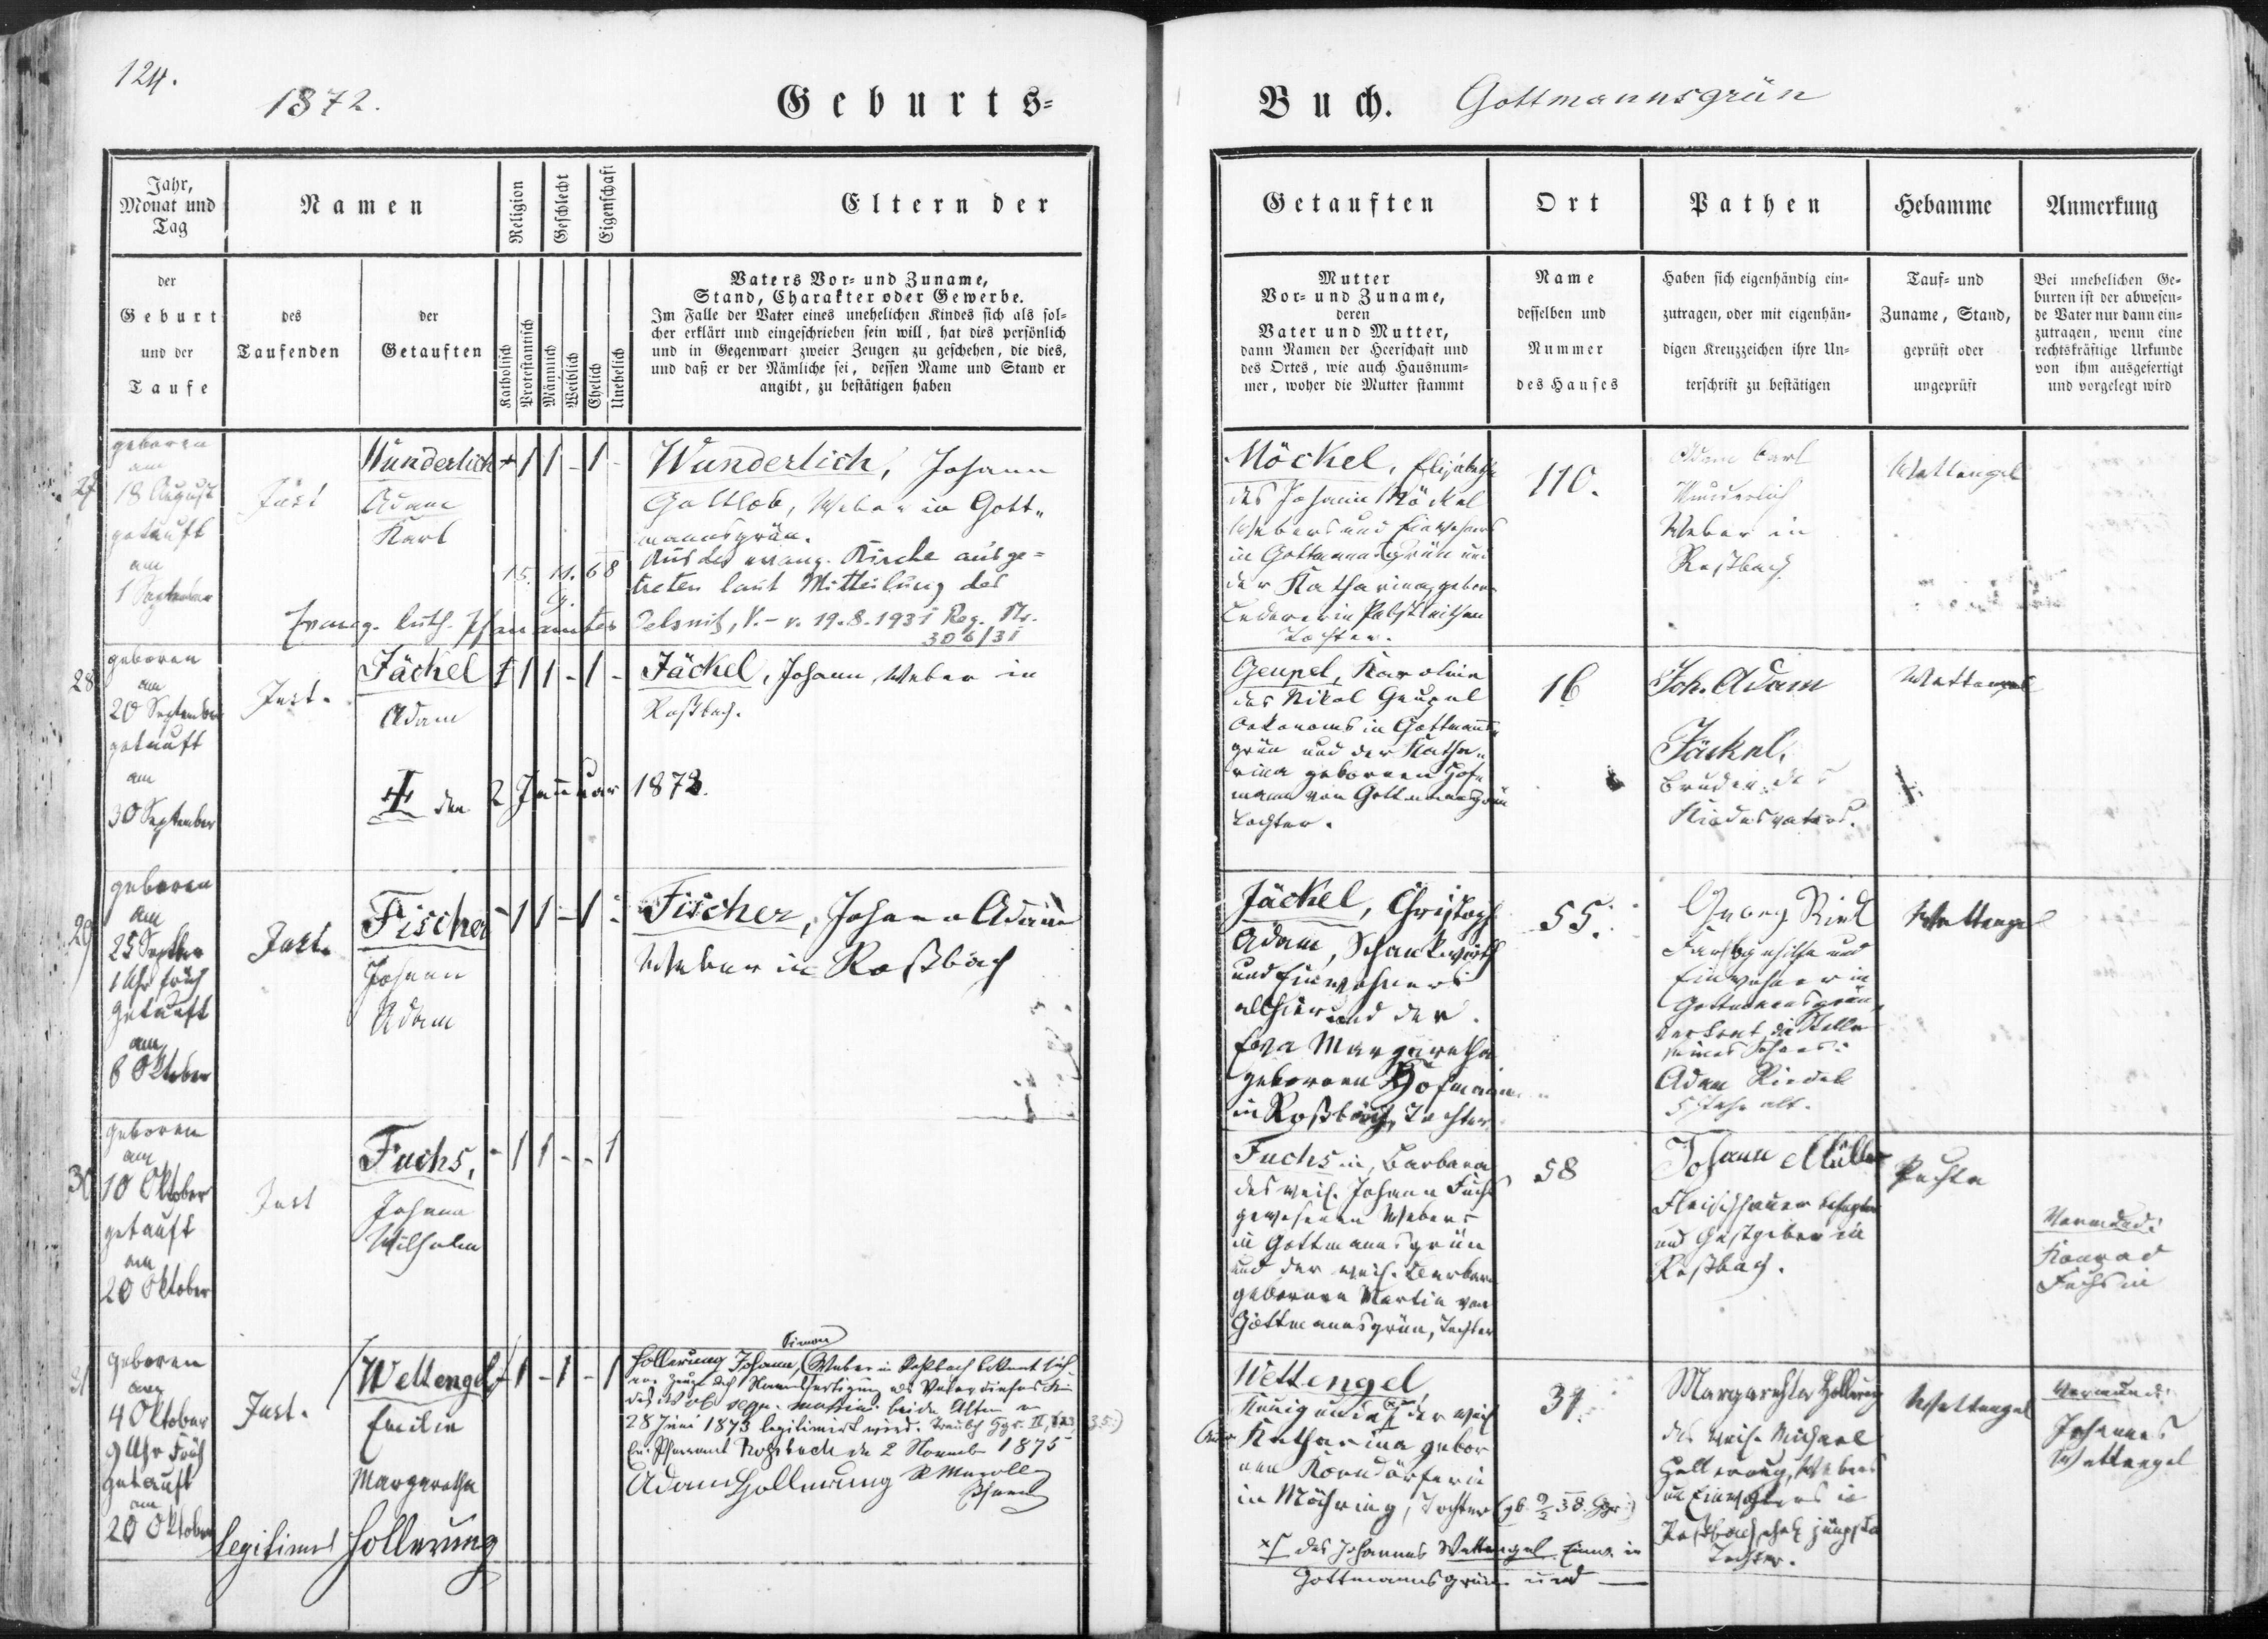 124.
1872.
Geburts-
Buch. Gottmannsgrün
Jahr,
Monat und
Tag
Namen
Religion
Geschlecht
Eigenschaft
Eltern der
Getauften
Ort
Pathen
Hebamme
Anmerkung
der
Geburt
und der
Taufe
des
Taufenden
der
Getauften
Katholisch
Protestantisch
Männlich
Weiblich
Ehelich
Unehelich
Vaters Vor- und Zuname,
Stand, Charakter oder Gewerbe.
Im Falle der Vater eines unehelichen Kindes sich als sol-
cher erklärt und eingeschrieben sein will, hat dies persönlich
und in Gegenwart zweier Zeugen zu geschehen, die dies,
und daß er der Nämliche sei, dessen Name und Stand er
angibt, zu bestätigen haben
Mutter
Vor- und Zuname,
deren
Vater und Mutter,
dann Namen der Heerschaft und
des Ortes, wie auch Hausnum-
mer, woher die Mutter stammt
Name
desselben und
Nummer
des Hauses
Haben sich eigenhändig ein-
zutragen, oder mit eigenhän-
digen Kreuzzeichen ihre Un-
terschrift zu bestätigen
Tauf- und
Zuname, Stand,
geprüft oder
ungeprüft
Bei unehelichen Ge-
burten ist der abwesen-
de Vater nur dann ein-
zutragen, wenn eine
rechtskräftige Urkunde
von ihm ausgefertigt
und vorgelegt wird
27
geboren
am
18 August
getauft
am
1 September
Just
Wunderlich
Adam
Karl
+ 1 1 - 1 -
Wunderlich, Johann
Gottlob, Weber in Gott-
mannsgrün.
Aus der evang. Kirche ausge-
treten laut Mitteilung des
Evang. luth. Pfarramtes Oelsnitz, V. - v. 19.8.1931 Reg. Nr.
306/31
15. 11. 68
Möckel, Elisabetha
des Johann Möckel
Webers und Einwohners
in Gottmannsgrün und
der Katharina, gebor
Tochter.
110.
Adam Carl
Wunderlich
Weber in
Roßbach
Wettengel
28
geboren
am
20 September
getauft
am
30 September
Just.
Jäckel
Adam
1 1 - 1 -
Jäckel, Johann, Weber in
Roßbach.
den 2 Januar 1873.
Geupel, Karoline
des Nikol Geupel
Oekonoms in Gottmanns-
grün und der Katha-
rina gebornen Hof-
mann von Gottmannsgrün
Tochter.
16
Joh. Adam
Jäckel,
Bruder des
Kindesvaters.
Wettengel
29
geboren
am
25 September
1 Uhr früh
getauft
am
6 Oktober
Just.
Fischer
Johann
Adam
- 1 1 - 1 -
Fischer, Johann Adam
Weber in Roßbach
Jäckel, Christoph
Adam, Schankwirth
und Einwohners
allhier und der
Eva Margaretha
gebornen Hofmann
in Roßbach, Tochter
55.
Georg Riedl
und
Einwohner in
Gottmannsgrün,
die Stelle
seines Sohnes:
Adam Riedel
5 Jahr alt.
Wettengel
30
geboren
am
10 Oktober
getauft
am
20 Oktober
Just
Fuchs,
Johann
Wilhelm
- 1 1 - - 1
Fuchsin, Barbara
des weil. Johann Fuchs
gewesenen Webers
in Gottmannsgrün
und der weil. Barbara
gebornen Martin von
Gottmannsgrün, Tochter
58
Johann Müller
Fleischhauer
und Gastgeber in
Roßbach.
Puchta
Vormund:
Konrad
Fuchs in
31
geboren
am
4 Oktober
9 Uhr Früh
getauft
am
20 Oktober
Just.
Wettengel
Emilie
Margaretha
legitimirt Hollerung
1 - 1 - 1
Simon
Hollerung Johann, Weber in Roßbach bekennt sich
als Vater dieses Kin
28 Juni 1873 legitimirt wird.
Ev. Pfarramt Roßbach den 2 Novemb 1875
Adam Hollerung
Wettengel,
Kunigunda, der weil
Katharina gebor
nen Korndörferin
in Mähring, Tochter
des Johannes Wettengel Einw. in
Gottmannsgrün und
31.
Margaretha Hollerung
des weil. Michael
Hollerung, Webers
u Einwohners in
Roßbach ehel. jüngste
Tochter.
Wettengel
Vormund:
Johannes
Wettengel